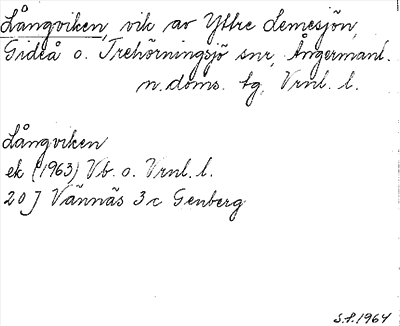 Långviken, vik av Yttre Lemesjön,
Gideå o. Trehörningsjö snr, Ångermanl.
n. doms. tg, Vrnl. l.
Långviken
ek (1963) Vb. o. Vrnl. l.
20 J Vännäs 3 c Genberg
S.F. 1964